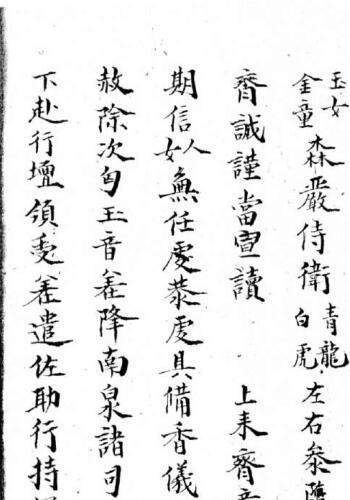 玉女金童森嚴侍衛青龍白虎左右參隨
齊誠謹當宣讀 上來齊意
期信人女無任虔恭虔具備香儀
赦除次勾玉音差降南泉諸司
下赴行壇領受差遣佐助行持